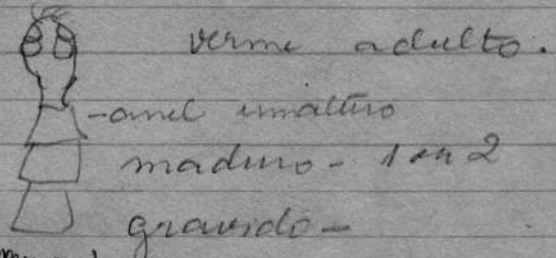 verme adulto.
-anel imaturo
maduro - 1 ou 2
gravido -